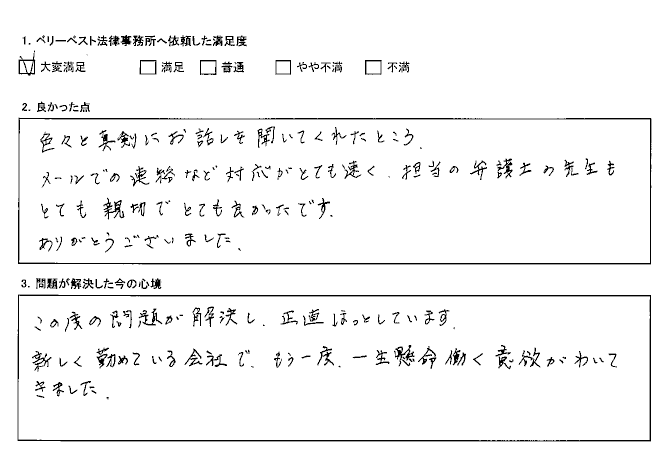 1. ベリーベスト法律事務所へ依頼した満足度
☑ 大変満足 □ 満足 □ 普通 □ やや不満 □ 不満
2. 良かった点
色々と真剣にお話しを聞いてくれたところ.
メールでの連絡など対応がとても速く、担当の弁護士の先生も
とても親切でとても良かったです.
ありがとうございました.
3. 問題が解決した今の心境
この度の問題が解決し、正直ほっとしています.
新しく勤めている会社で、もう一度、一生懸命働く意欲がわいて
きました.